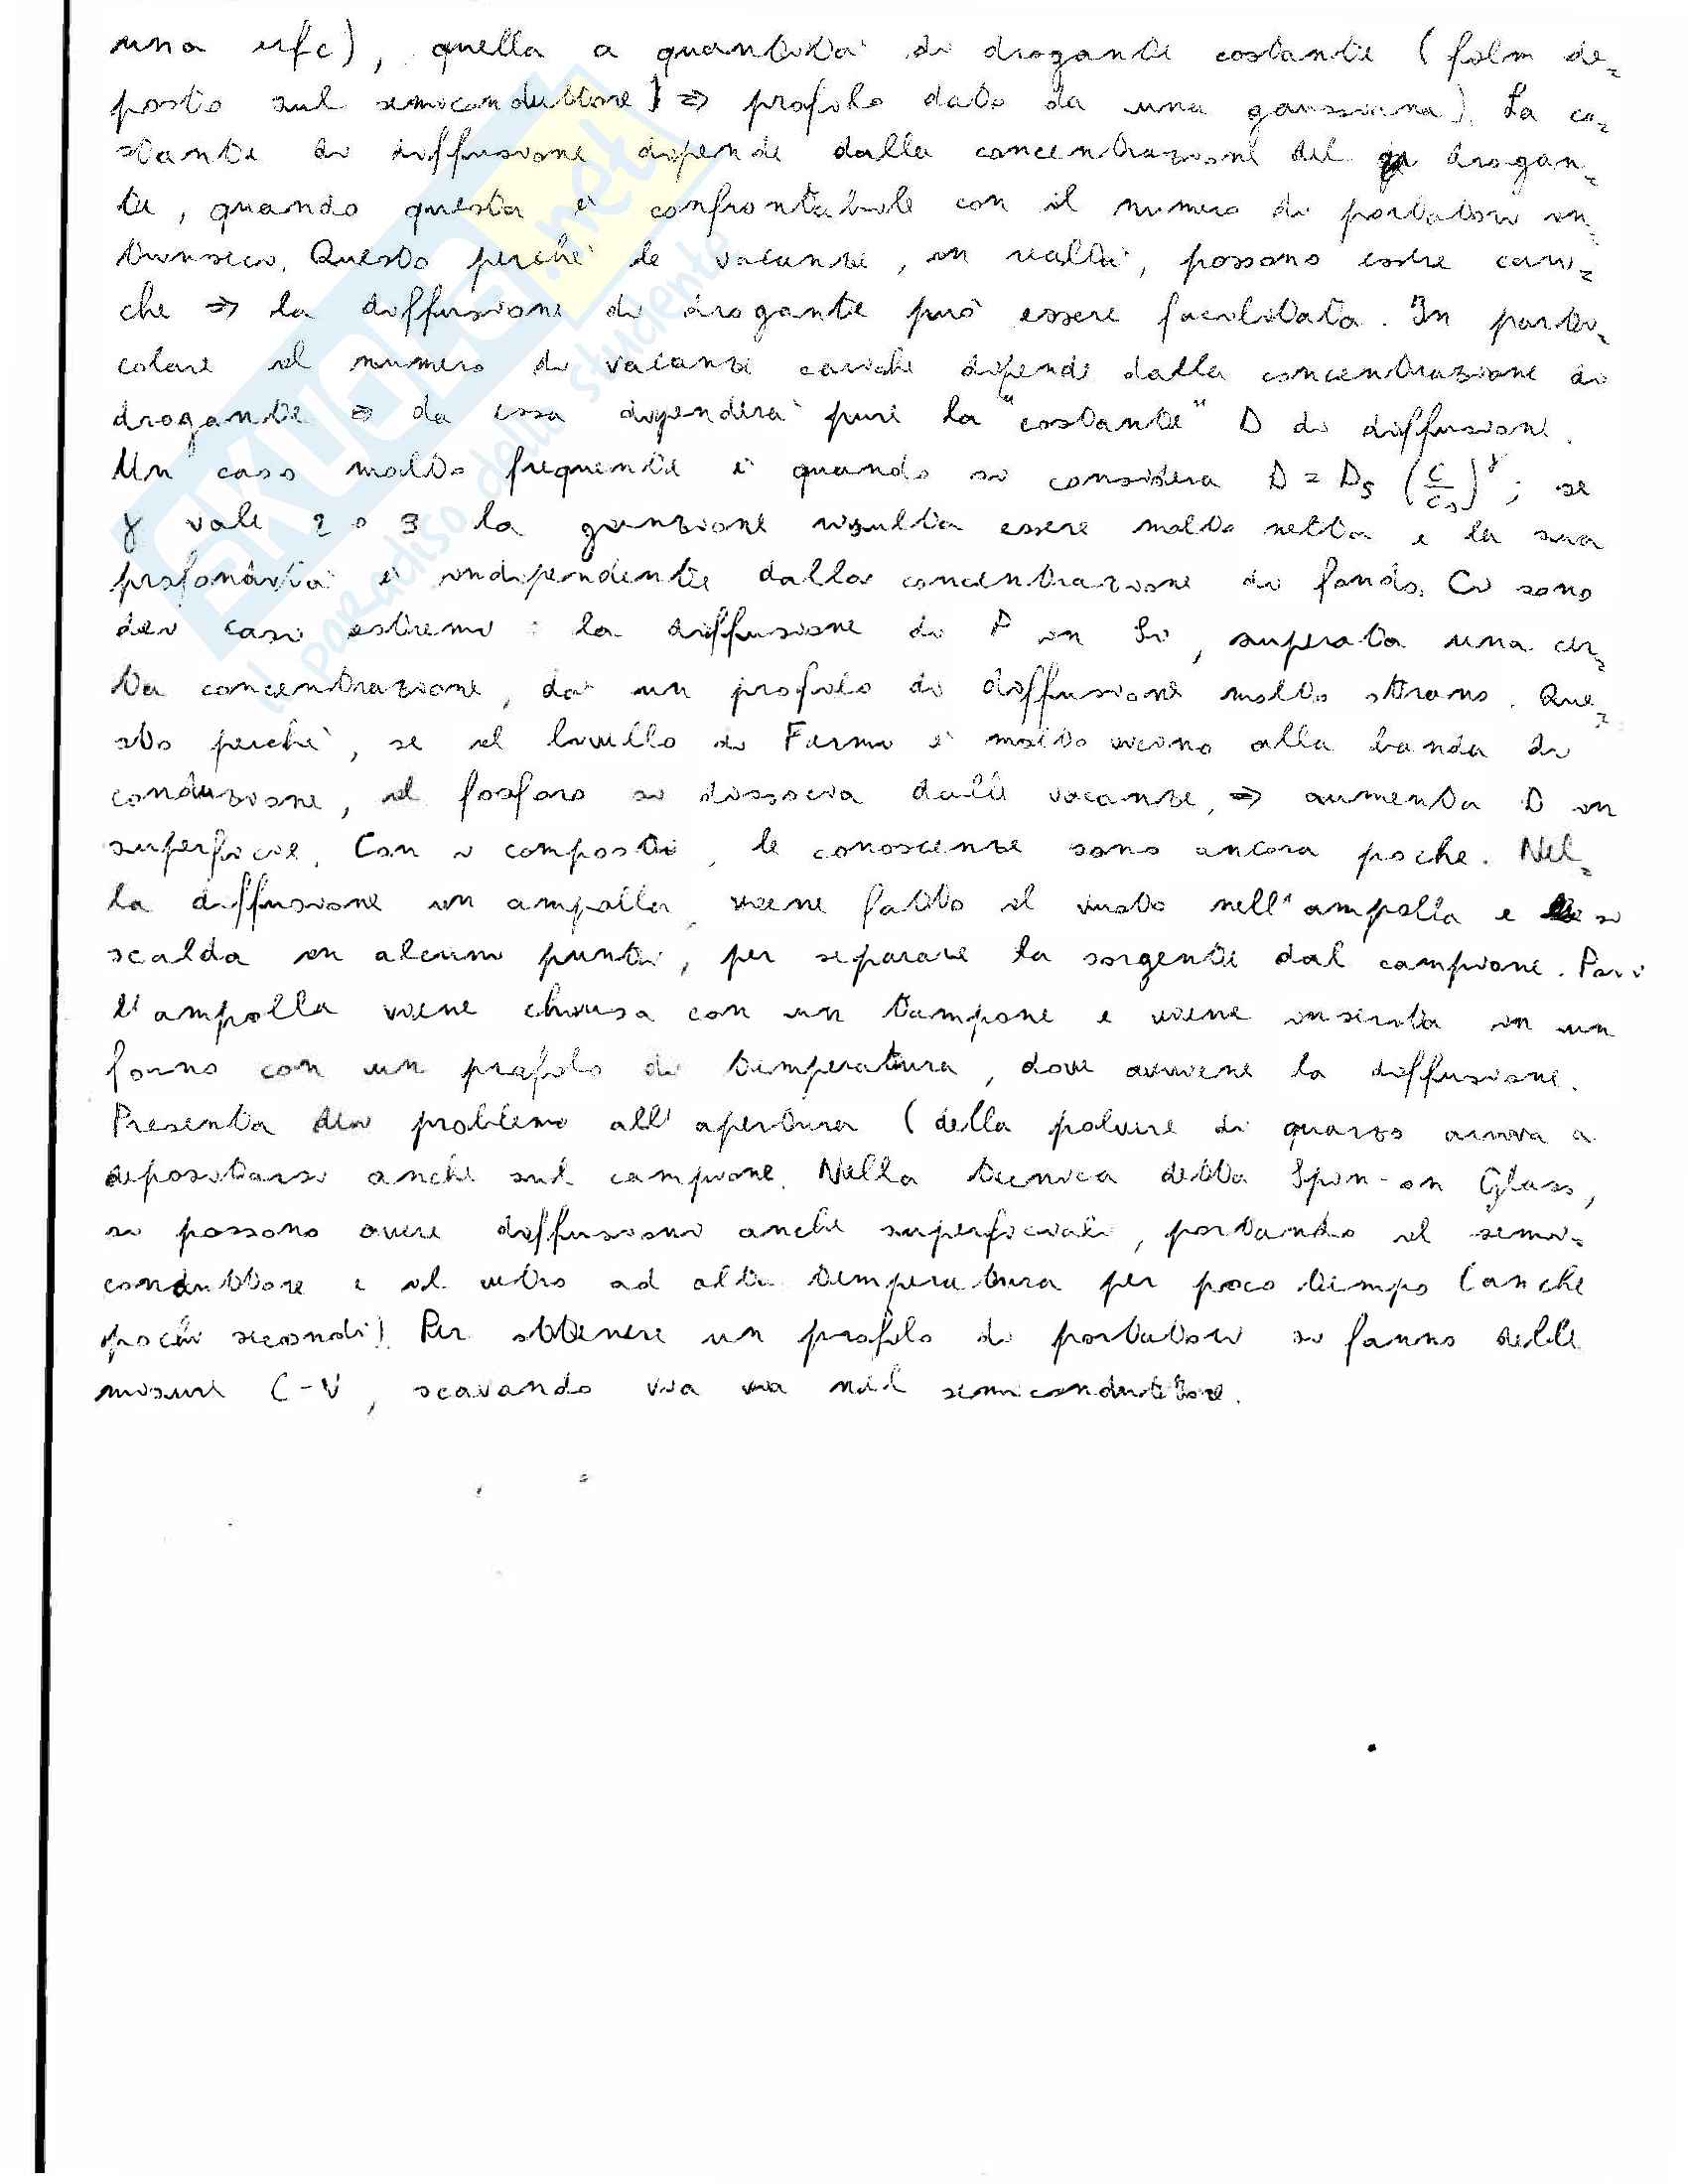 una erfc), quella a quantità di drogante costante (film de=
posto sul semiconduttore) ⇒ profilo dato da una gaussiana). La co=
stante di diffusione dipende dalla concentrazione del drogan=
te, quando questa è confrontabile con il numero di portatori in=
trinseci. Questo perchè le vacanze, in realtà, possono essere cari=
che ⇒ la diffusione di drogante può essere facilitata. In parti=
colare il numero di vacanze cariche dipende dalla concentrazione di
drogante ⇒ da essa dipenderà pure la "costante" D di diffusione.
Un caso molto frequente è quando si considera D = Ds (C/Cs)^γ; se
γ vale 2 o 3 la giunzione risulta essere molto netta e la sua
profondità è indipendente dalla concentrazione di fondo. Ci sono
dei casi estremi: la diffusione di P in Si, superata una cer=
ta concentrazione, dà un profilo di diffusione molto strano. Que=
sto perchè, se il livello di Fermi è molto vicino alla banda di
conduzione, il fosforo si dissocia dalle vacanze, ⇒ aumenta D in
superficie. Con i composti, le conoscenze sono ancora poche. Nel=
la diffusione in ampolla, viene fatto il vuoto nell'ampolla e si
scalda in alcuni punti, per separare la sorgente dal campione. Poi
l'ampolla viene chiusa con un tampone e viene inserita in un
forno con un profilo di temperatura, dove avviene la diffusione.
Presenta dei problemi all'apertura (della polvere di quarzo arriva a
depositarsi anche sul campione. Nella tecnica detta Spin-on Glass,
si possono avere diffusioni anche superficiali, portando il semi=
conduttore e il vetro ad alta temperatura per poco tempo (anche
pochi secondi). Per ottenere un profilo di portatori si fanno delle
misure C-V, scavando via via nel semiconduttore.
SKUOLA.net
il paradiso dello studente